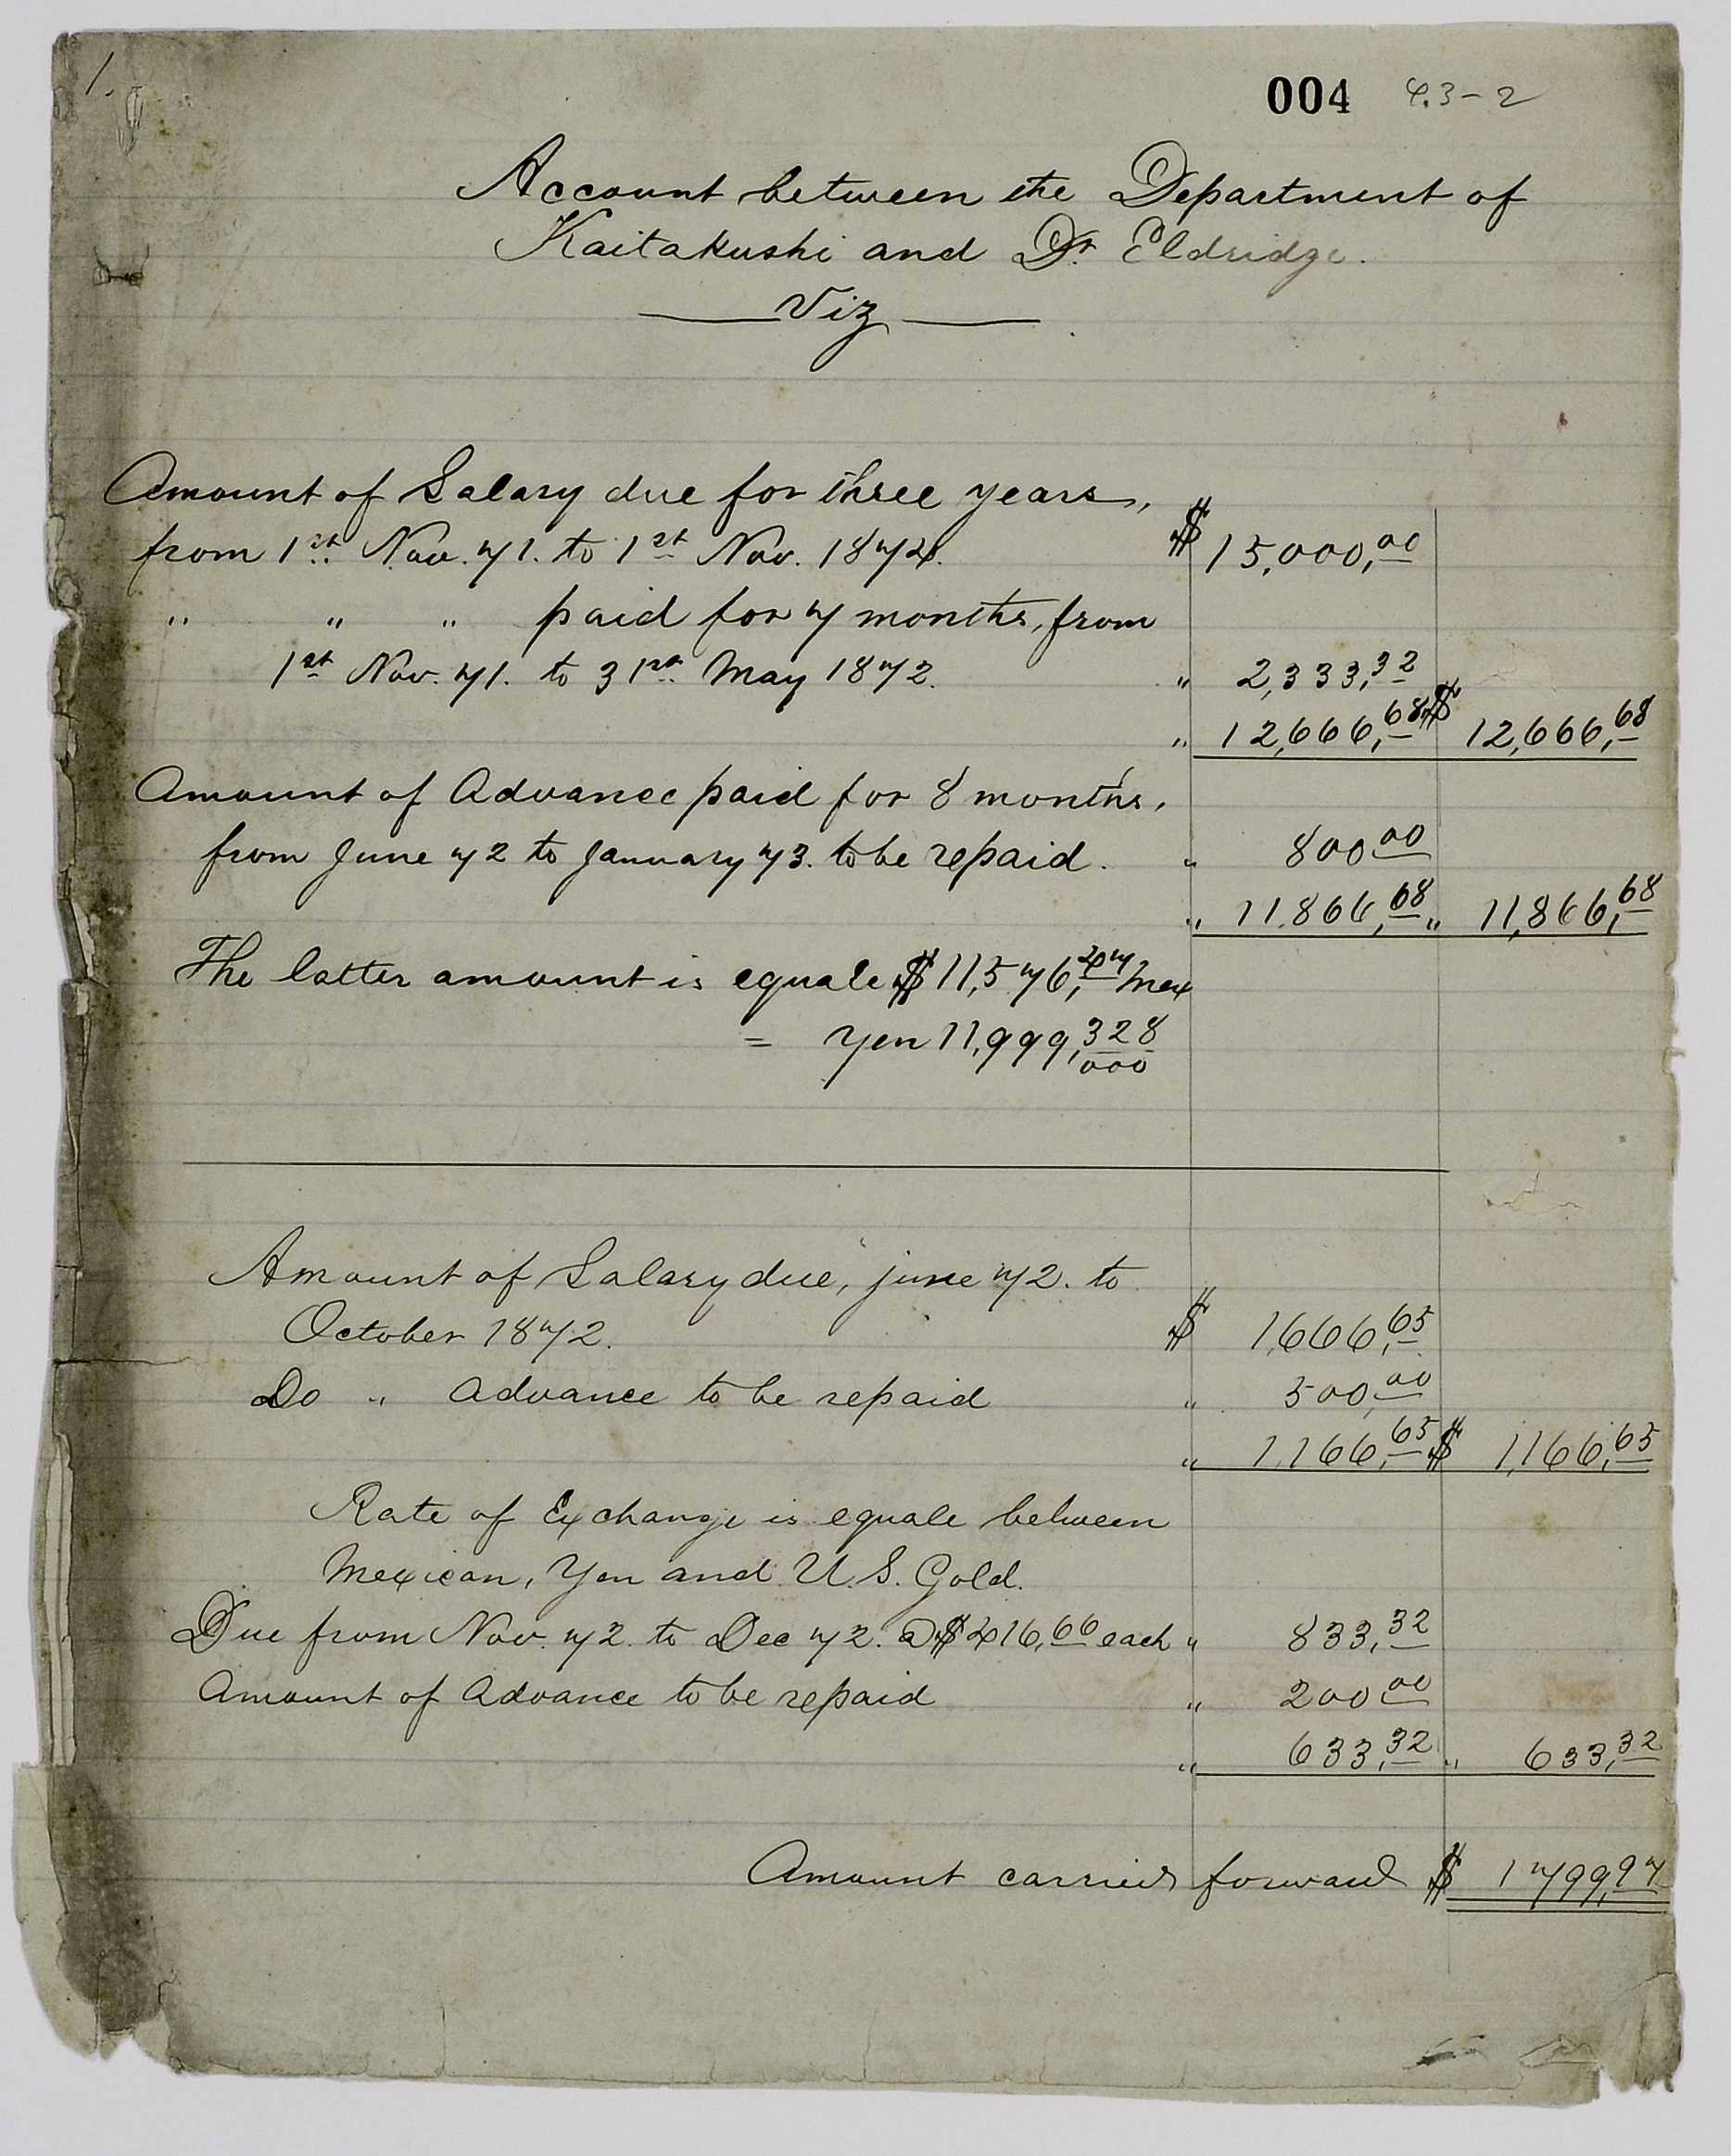 1.
004 4.3-2
Account between the Department of
Kaitakushi and Dr. Eldridge.
Viz
Amount of Salary due for three years,
from 1st Nov. 71. to 1st Nov. 1874. $ 15,000,00
" " " paid for 7 months, from
1st Nov. 71. to 31st May 1872. " 2,333,32
" 12,666,68 $ 12,666,68
Amount of Advance paid for 8 months,
from June 72 to January 73. to be repaid. " 800 00
" 11.866,68 " 11,866,68
The latter amount is equale $ 11,576,47 Mex
= Yen 11,999,328
000
Amount of Salary due, june 72. to
October 1872. $ 1,666,65
Do " Advance to be repaid " 500,00
" 1,166,65 $ 1,166,65
Rate of Exchange is equale between
Mexican, Yen and U.S. Gold.
Due from Nov. 72. to Dec 72. @ $ 416,66 each " 833,32
Amount of Advance to be repaid " 200 00
" 633,32 " 633,32
Amount carried forward $ 1799,97